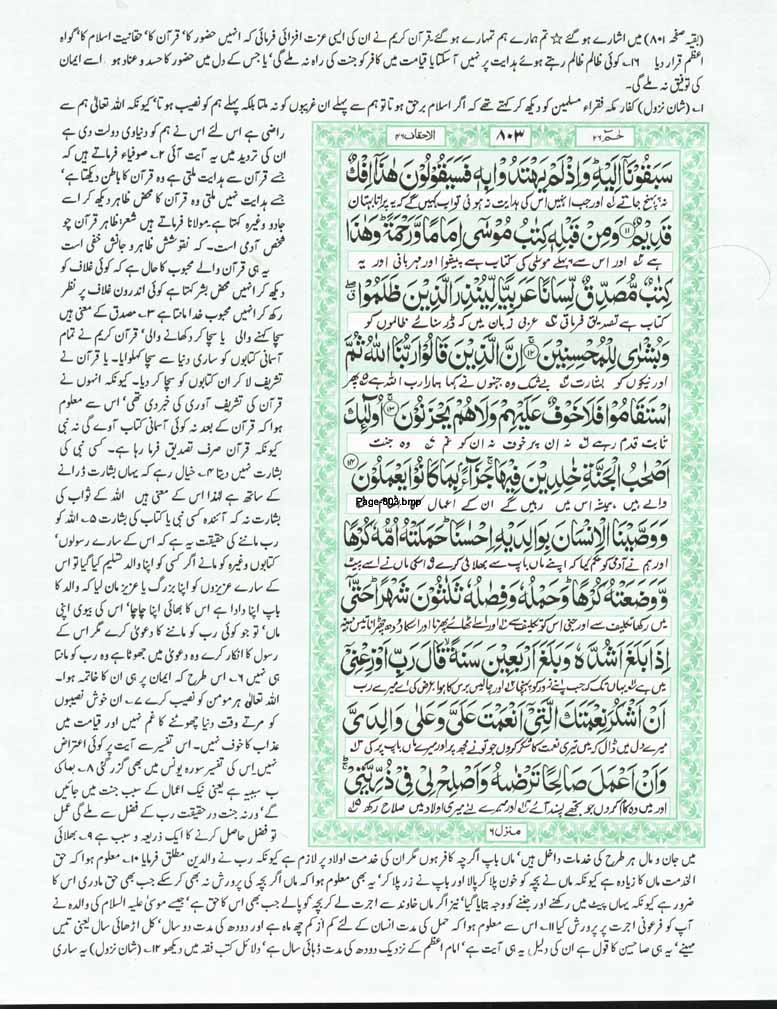 (بقیہ صفحہ ۸۰۱) میں اشارے ہو گئے ☆ تم ہمارے ہم تمہارے ہو گئے۔ قرآن کریم نے ان کی ایسی عزت افزائی فرمائی کہ انہیں حضور کا' قرآن کا' حقانیت اسلام کا' گواہ
اعظم قرار دیا ۱۶۔ کوئی ظالم ظالم رہتے ہوئے ہدایت پر نہیں آسکتا یا قیامت میں کافر کو جنت کی راہ نہ ملے گی' یا جس کے دل میں حضور کا حسد و عناد ہو اسے ایمان
کی توفیق نہ ملے گی۔
۱۔ (شان نزول) کفار مکہ فقراء مسلمین کو دیکھ کر کہتے تھے کہ اگر اسلام برحق ہوتا تو ہم سے پہلے ان غریبوں کو نہ ملتا بلکہ پہلے ہم کو نصیب ہوتا' کیونکہ اللہ تعالیٰ ہم سے
راضی ہے اس لئے اس نے ہم کو دنیاوی دولت دی ہے
ان کی تردید میں یہ آیت آئی ۲۔ صوفیاء فرماتے ہیں کہ
جسے قرآن سے ہدایت ملتی ہے وہ قرآن کا باطن دیکھتا ہے'
جسے ہدایت نہیں ملتی وہ قرآن کا محض ظاہر دیکھ کر اسے
جادو وغیرہ کہتا ہے۔ مولانا فرماتے ہیں شعر: ظاہر قرآن چو
شخص آدمی است۔ کہ نقوشش ظاہر و جانش خفی است
یہ ہی قرآن والے محبوب کا حال ہے کہ کوئی غلاف کو
دیکھ کر انہیں محض بشر کہتا ہے کوئی اندرون غلاف پر نظر
رکھ کر انہیں محبوب خدا مانتا ہے ۳۔ مصدق کے معنی ہیں
سچا کہنے والی یا سچا کر دکھانے والی' قرآن کریم نے تمام
آسمانی کتابوں کو ساری دنیا سے سچا کہلوایا۔ یا قرآن نے
تشریف لا کر ان کتابوں کو سچا کر دیا۔ کیونکہ انہوں نے
قرآن کی تشریف آوری کی خبر دی تھی' اس سے معلوم
ہوا کہ قرآن کے بعد نہ کوئی آسمانی کتاب آوے گی نہ نبی
کیونکہ قرآن صرف تصدیق فرما رہا ہے۔ کسی نبی کی
بشارت نہیں دیتا ۴۔ خیال رہے کہ یہاں بشارت ڈرانے
کے ساتھ ہے لہٰذا اس کے معنی ہیں اللہ کے ثواب کی
بشارت نہ کہ آئندہ کسی نبی یا کتاب کی بشارت ۵۔ اللہ کو
رب ماننے کی حقیقت یہ ہے کہ اس کے سارے رسولوں'
کتابوں وغیرہ کو مانے اگر کسی کو اپنا والد تسلیم کیا گیا تو اس
کے سارے عزیزوں کو اپنا بزرگ یا عزیز مان لیا کہ والد کا
باپ اپنا دادا ہے اس کا بھائی اپنا چاچا' اس کی بیوی اپنی
ماں' تو جو کوئی رب کو ماننے کا دعویٰ کرے مگر اس کے
رسول کا انکار کرے وہ دعویٰ میں جھوٹا ہے وہ رب کو مانتا
ہی نہیں ۶۔ اس طرح کہ ایمان پر ہی ان کا خاتمہ ہوا۔
اللہ تعالیٰ ہر مومن کو نصیب کرے ۷۔ ان خوش نصیبوں
کو مرتے وقت دنیا چھوٹنے کا غم نہیں اور قیامت میں
عذاب کا خوف نہیں۔ اس تفسیر سے آیت پر کوئی اعتراض
نہیں اس کی تفسیر سورہ یونس میں بھی گزر گئی ۸۔ بما کی
ب سببیہ ہے یعنی نیک اعمال کے سبب جنت میں جائیں
گے' ورنہ جنت در حقیقت رب کے فضل سے ملے گی عمل
تو فضل حاصل کرنے کا ایک ذریعہ و سبب ہے ۹۔ بھلائی
حٰمٓ ۲۶
۸۰۳
الاحقاف ۴۶
سَبَقُوْنَاۤ اِلَیْهِ ؕ وَ اِذْ لَمْ یَهْتَدُوْا بِهٖ فَسَیَقُوْلُوْنَ هٰذَاۤ اِفْكٌ
نہ پہنچ جاتے اور جب انہیں اس کی ہدایت نہ ہوئی تو اب کہیں گے کہ یہ پرانا بہتان
قَدِیْمٌ ۝۱۱ وَ مِنْ قَبْلِهٖ كِتٰبُ مُوْسٰۤى اِمَامًا وَّ رَحْمَةً ؕ وَ هٰذَا
ہے اور اس سے پہلے موسٰی کی کتاب ہے پیشوا اور مہربانی اور یہ
كِتٰبٌ مُّصَدِّقٌ لِّسَانًا عَرَبِیًّا لِّیُنْذِرَ الَّذِیْنَ ظَلَمُوْا ۖۗ
کتاب ہے تصدیق فرماتی عربی زبان میں کہ ڈر سنائے ظالموں کو
وَ بُشْرٰى لِلْمُحْسِنِیْنَ ۝۱۲ اِنَّ الَّذِیْنَ قَالُوْا رَبُّنَا اللّٰهُ ثُمَّ
اور نیکوں کو بشارت بے شک وہ جنہوں نے کہا ہمارا رب اللہ ہے پھر
اسْتَقَامُوْا فَلَا خَوْفٌ عَلَیْهِمْ وَ لَا هُمْ یَحْزَنُوْنَ ۝۱۳ اُولٰٓىِٕكَ
ثابت قدم رہے نہ ان پر خوف نہ ان کو غم وہ جنت
اَصْحٰبُ الْجَنَّةِ خٰلِدِیْنَ فِیْهَا ۚ جَزَآءًۢ بِمَا كَانُوْا یَعْمَلُوْنَ ۝۱۴
والے ہیں ہمیشہ اس میں رہیں گے ان کے اعمال
Page-803.bmp
وَ وَصَّیْنَا الْاِنْسَانَ بِوَالِدَیْهِ اِحْسٰنًا ؕ حَمَلَتْهُ اُمُّهٗ كُرْهًا
اور ہم نے آدمی کو حکم کیا کہ اپنے ماں باپ سے بھلائی کرے اس کی ماں نے اسے پیٹ
وَّ وَضَعَتْهُ كُرْهًا ؕ وَ حَمْلُهٗ وَ فِصٰلُهٗ ثَلٰثُوْنَ شَهْرًا ؕ حَتّٰۤى
میں رکھا تکلیف سے اور جنی اس کو تکلیف سے اور اسے اٹھائے پھرنا اور اس کا دودھ چھڑانا تیس مہینے
اِذَا بَلَغَ اَشُدَّهٗ وَ بَلَغَ اَرْبَعِیْنَ سَنَةً ۙ قَالَ رَبِّ اَوْزِعْنِیْۤ
میں ہے یہاں تک کہ جب اپنے زور کو پہنچا اور چالیس برس کا ہوا عرض کی اے میرے رب
اَنْ اَشْكُرَ نِعْمَتَكَ الَّتِیْۤ اَنْعَمْتَ عَلَیَّ وَ عَلٰى وَالِدَیَّ
میرے دل میں ڈال کہ میں تیری نعمت کا شکر کروں جو تو نے مجھ پر اور میرے ماں باپ پر کی
وَ اَنْ اَعْمَلَ صَالِحًا تَرْضٰىهُ وَ اَصْلِحْ لِیْ فِیْ ذُرِّیَّتِیْ ۚ
اور میں وہ کام کروں جو تجھے پسند آئے اور میرے لئے میری اولاد میں صلاح رکھ
منزل ۶
میں جان و مال ہر طرح کی خدمات داخل ہیں' ماں باپ اگرچہ کافر ہوں مگر ان کی خدمت اولاد پر لازم ہے کیونکہ رب نے والدین مطلق فرمایا ۱۰۔ معلوم ہوا کہ حق
الخدمت ماں کا زیادہ ہے کیونکہ ماں نے بچہ کو خون پلا کر پالا اور باپ نے زر پلا کر' یہ بھی معلوم ہوا کہ ماں اگر بچہ کی پرورش نہ بھی کر سکے جب بھی حق مادری اس کا
ضرور ہے کیونکہ یہاں پیٹ میں رکھنے اور جننے کو وجہ بتایا گیا' نیز اگر ماں خاوند سے اجرت لے کر بچہ کو پالے جب بھی اس کا حق ہے' جیسے موسیٰ علیہ السلام کی والدہ نے
آپ کو فرعونی اجرت پر پرورش کیا ۱۱۔ اس سے معلوم ہوا کہ حمل کی مدت انسان کے لئے کم از کم چھ ماہ ہے اور دودھ کی مدت دو سال' کل اڑھائی سال یعنی تیس
مہینے' یہ ہی صاحبین کا قول ہے ان کی دلیل یہ ہی آیت ہے' امام اعظم کے نزدیک دودھ کی مدت ڈہائی سال ہے' دلائل کتب فقہ میں دیکھو ۱۲۔ (شان نزول) یہ ساری